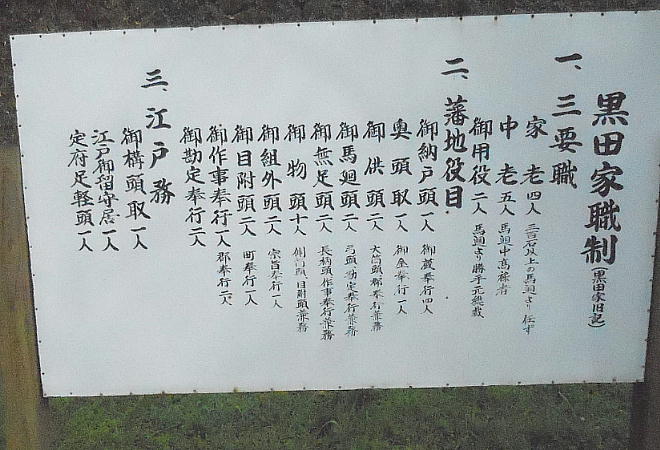 黒田家職制(黒田家旧記)
一、三要職
家老四人 三百石以上の馬廻より任ず
中老五人 馬廻中高禄者
御用役二人 馬廻より勝手元総裁
二、藩地役目
御納戸頭一人 御蔵奉行四人
奥頭取一人 御金奉行一人
御供頭二人 大筒頭郡奉行兼務
御馬廻頭二人 弓頭勘定奉行兼務
御無足頭二人 長柄頭作事奉行兼務
御物頭十人 側筒頭目附頭兼務
御組外頭二人 宗旨奉行一人
御目附頭二人 町奉行二人
御作事奉行一人 郡奉行二人
御勘定奉行二人
三、江戸務
御構頭取一人
江戸御留守居一人
定府足軽頭一人